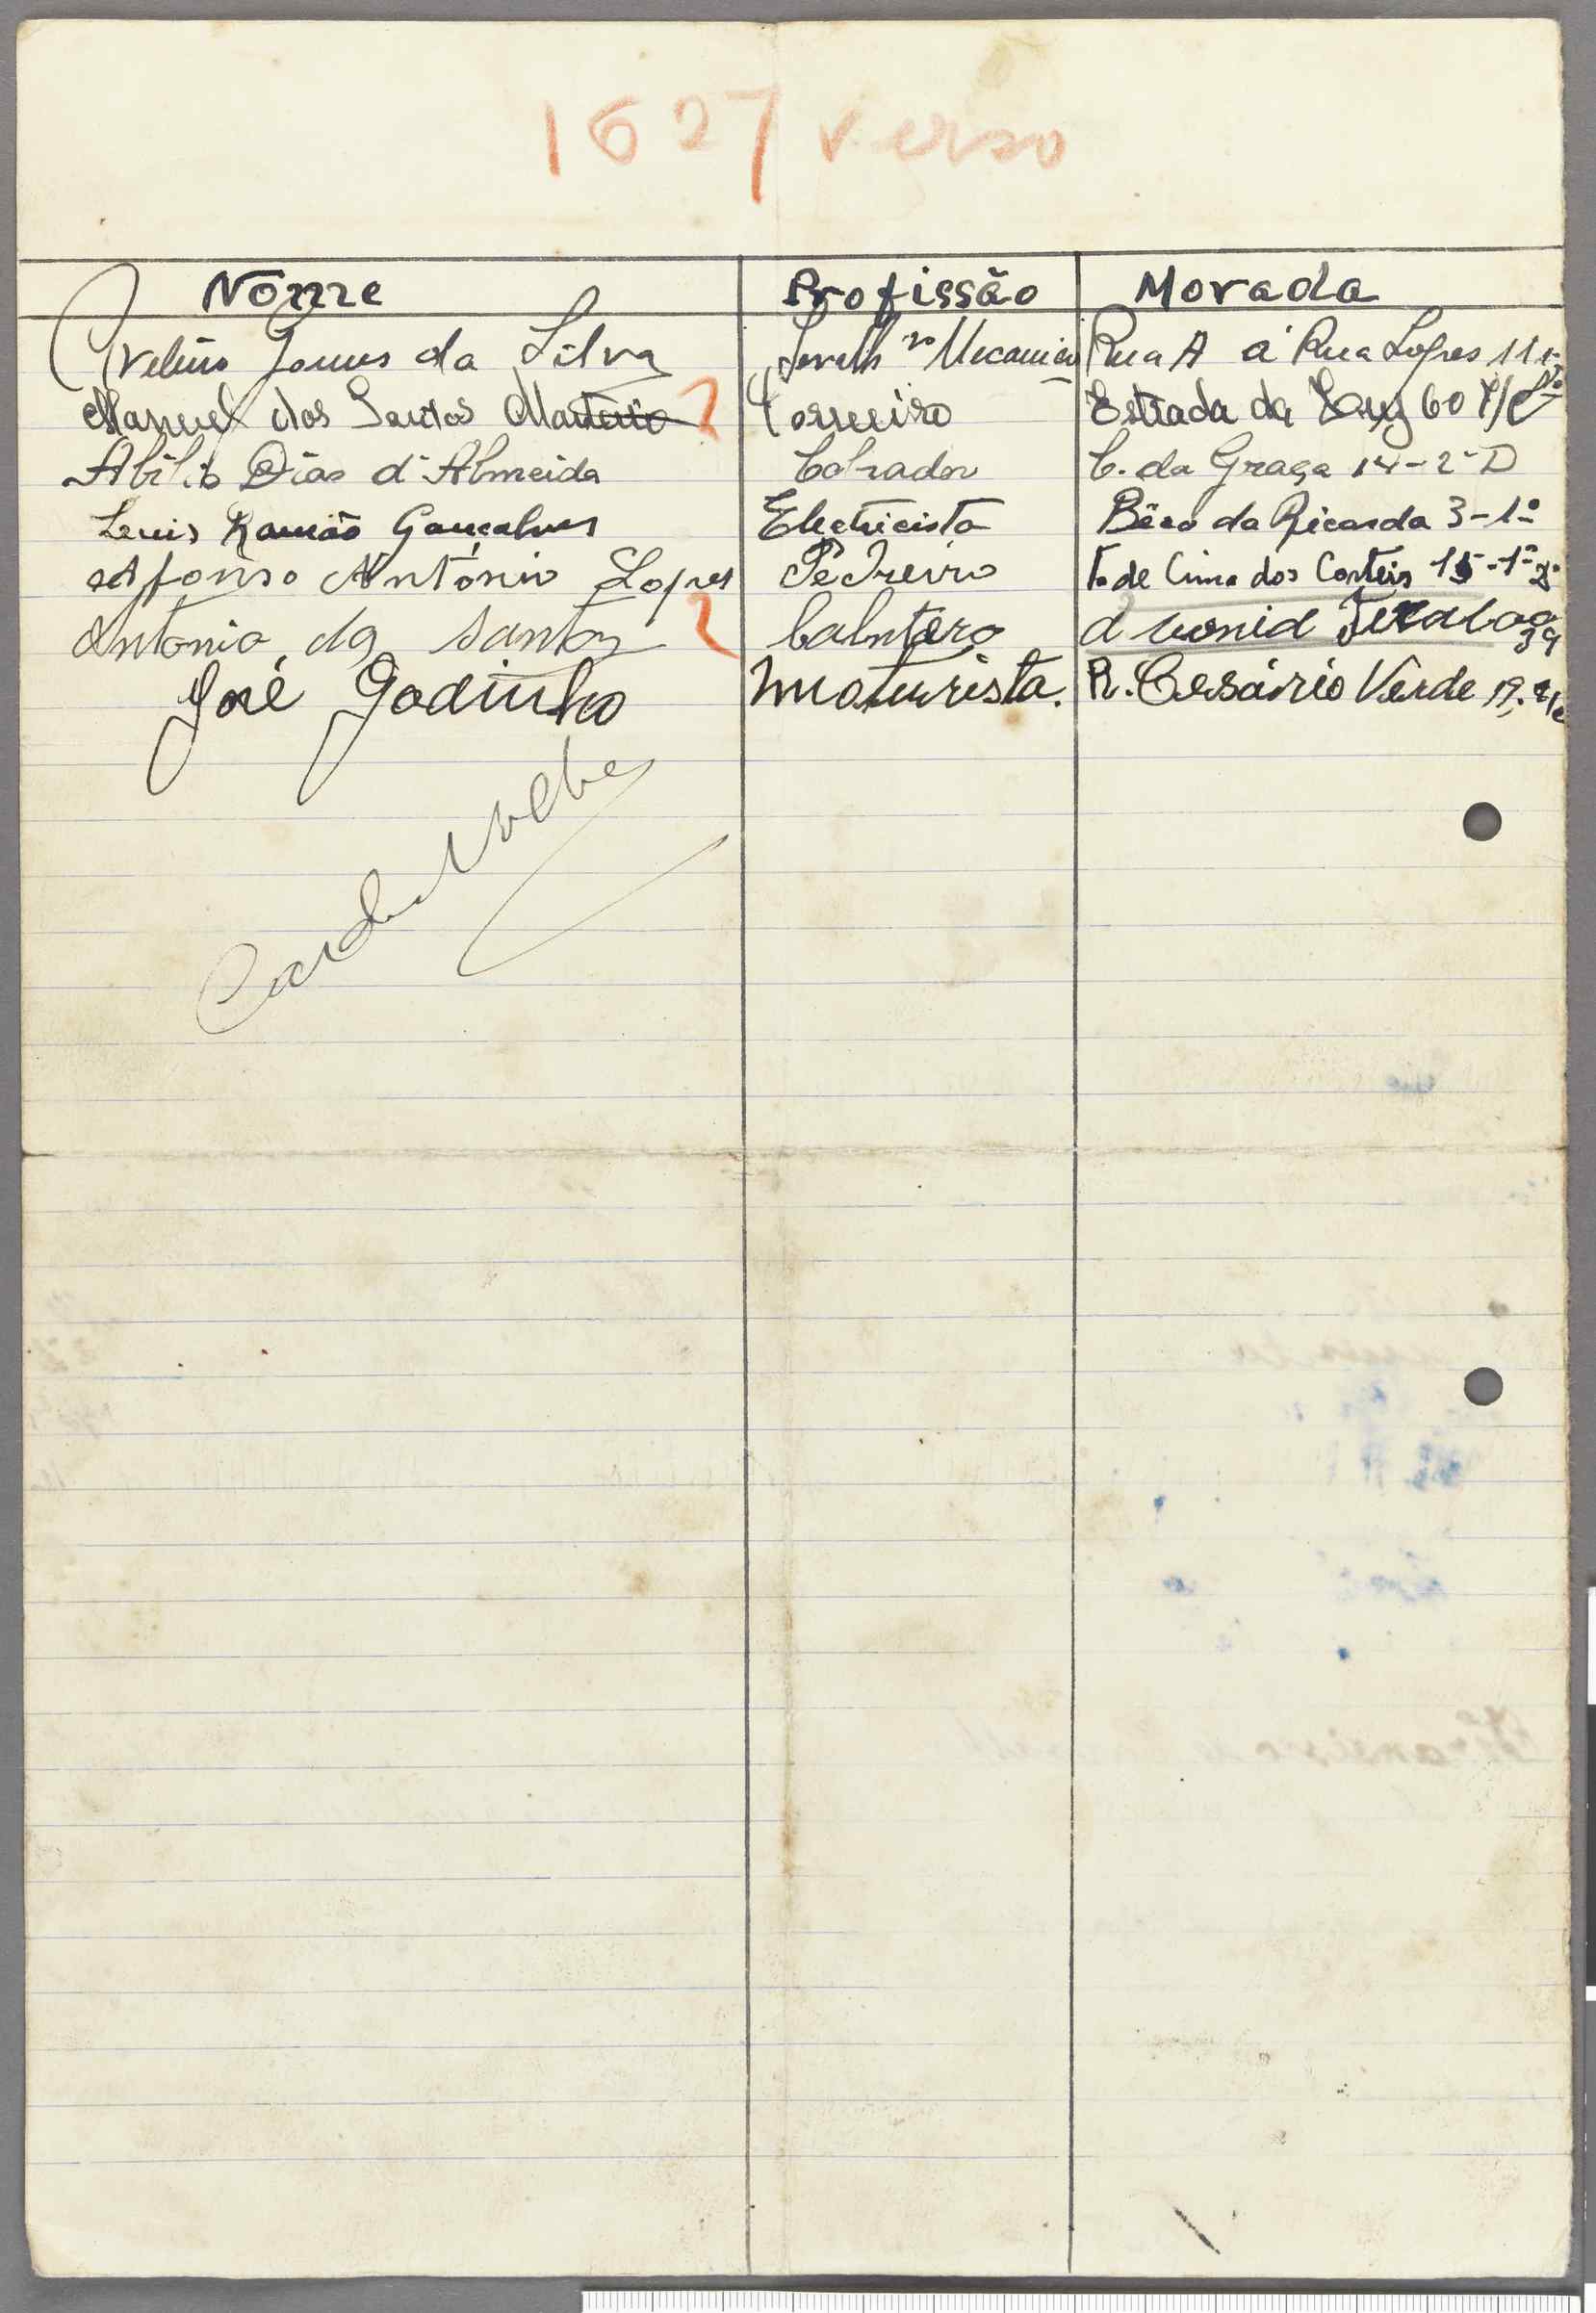 1627 verso
Nome Profissão Morada
Avelino Gomes da Silva Serralhro Mecanico Rua A á Rua Lopes 11 r
Manuel dos Santos Torneiro Estrada da Luz 60 r/c
Abilio Dias d'Almeida Cobrador C. da Graça 14-2º D
Luis Ramião Gonçalves Electricista Bêco da Ricarda 3-1º
Afonso António Lopes Pedreiro T. de Cima dos Corteis 15-1º
Antonio da santoz 39
José Godinho Muturista. R. Cesáirio Verde 19. r/c